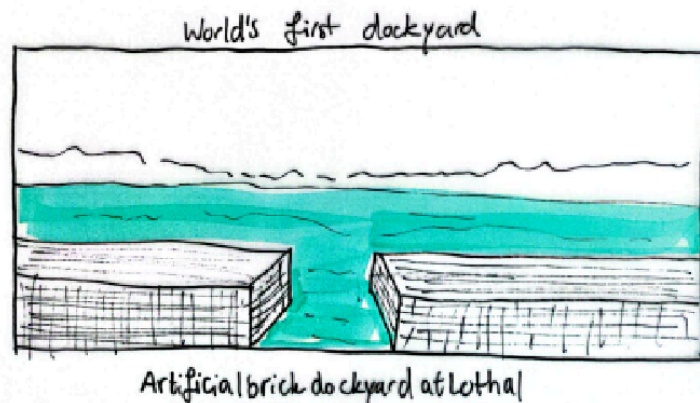 World's first dockyard
Artificial brick dockyard at Lothal